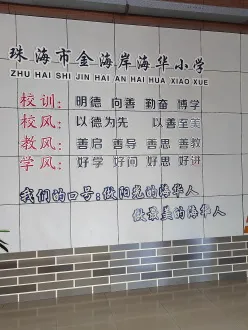 珠海市金海岸海华小学
ZHU HAI SHI JIN HAI AN HAI HUA XIAO XUE
校训: 明德 向善 勤奋 博学
校风: 以德为先 以善至美
教风: 善启 善导 善思 善教
学风: 好学 好问 好思 好讲
我们的口号:做阳光的海华人
做最美的海华人